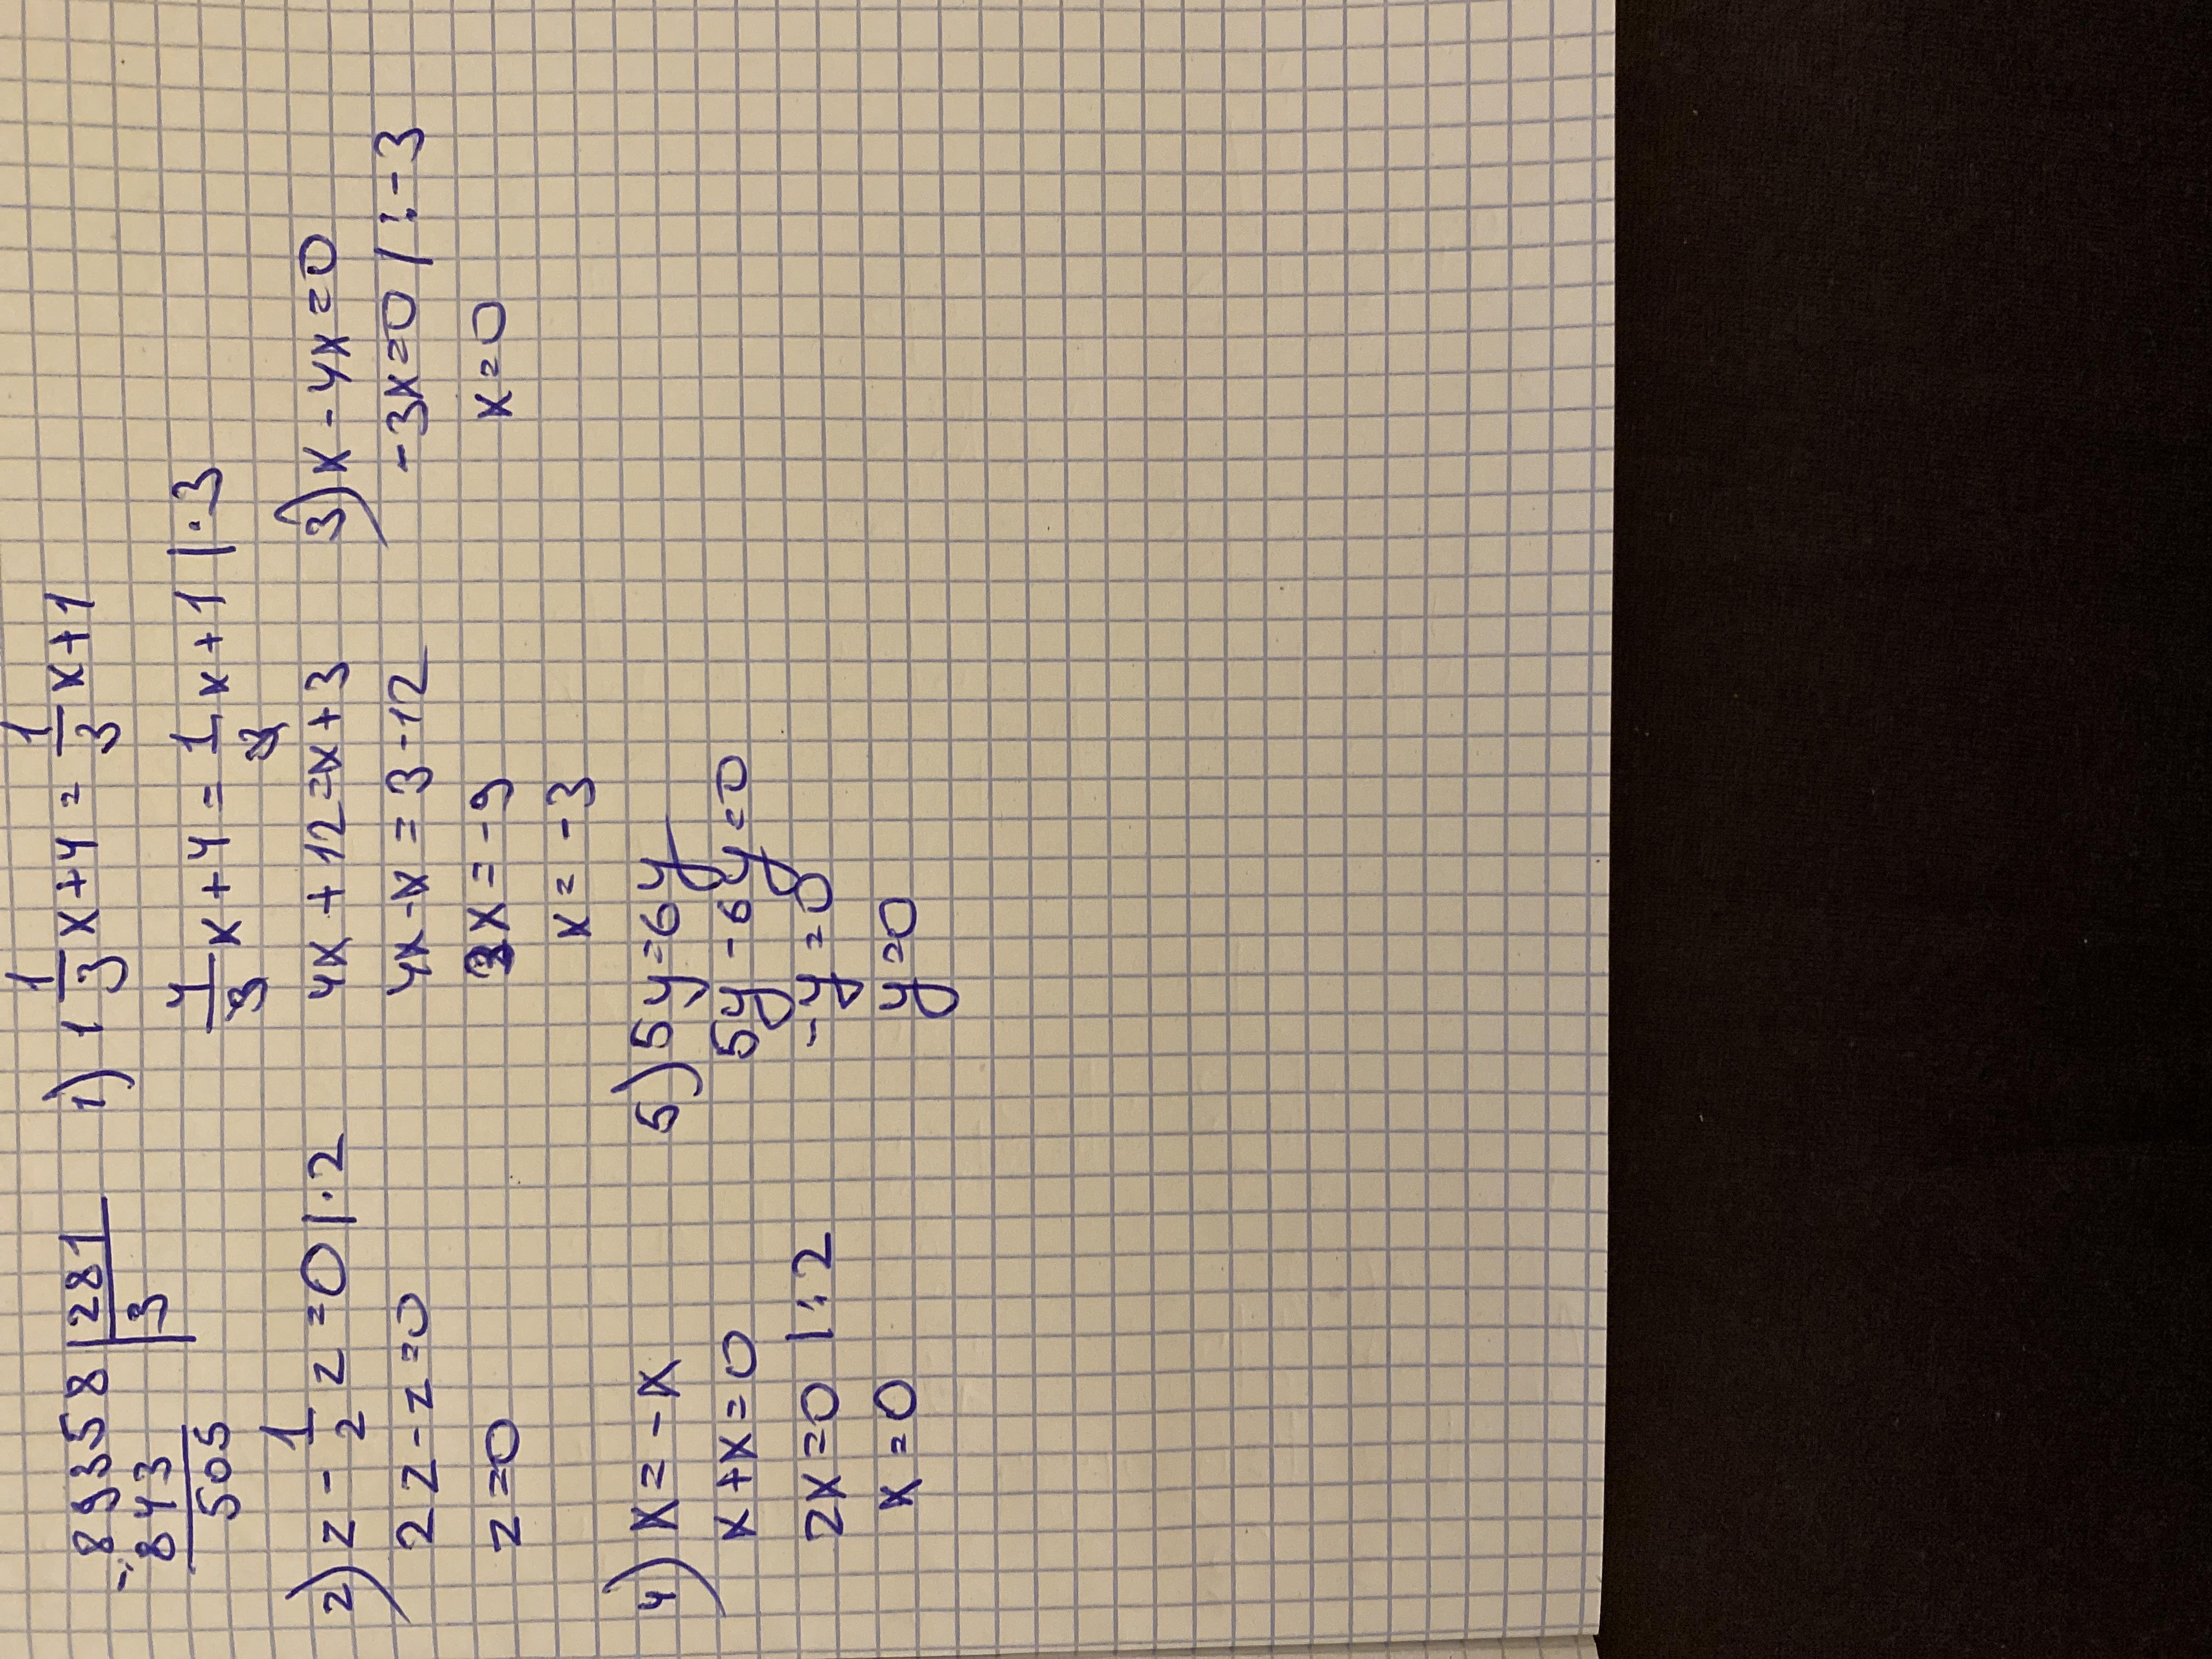 89358 | 281
- 843 | 3
505
1) 1 1/3 x + 4 = 1/3 x + 1
4/3 x + 4 = 1/3 x + 1 | · 3
4x + 12 = x + 3
4x - x = 3 - 12
3x = -9
x = -3
2) z - 1/2 z = 0 | · 2
2z - z = 0
z = 0
3) x - 4x = 0
-3x = 0 | : -3
x = 0
4) x = -x
x + x = 0
2x = 0 | : 2
x = 0
5) 5y = 6y
5y - 6y = 0
-y = 0
y = 0